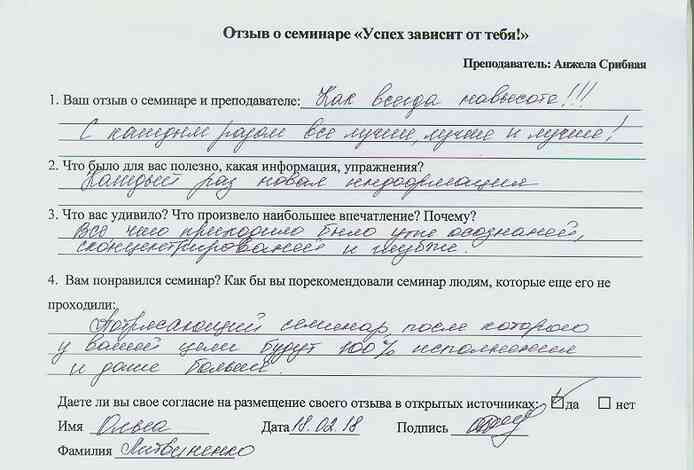 Отзыв о семинаре «Успех зависит от тебя!»
Преподаватель: Анжела Срибная
1. Ваш отзыв о семинаре и преподавателе: Как всегда навысоте!!!
С каждым разом все лучше, лучше и лучше!
2. Что было для вас полезно, какая информация, упражнения?
Каждый раз новая информация
3. Что вас удивило? Что произвело наибольшее впечатление? Почему?
Все что приходило было уже осознаней,
сконцентрированей и глубже.
4. Вам понравился семинар? Как бы вы порекомендовали семинар людям, которые еще его не
проходили:
Потрясающий семинар, после которого
у вашей цели будут 100% исполнения
и даже больше.
Даете ли вы свое согласие на размещение своего отзыва в открытых источниках: да нет
Имя Ольга Дата 18.02.18 Подпись
Фамилия Литвиненко